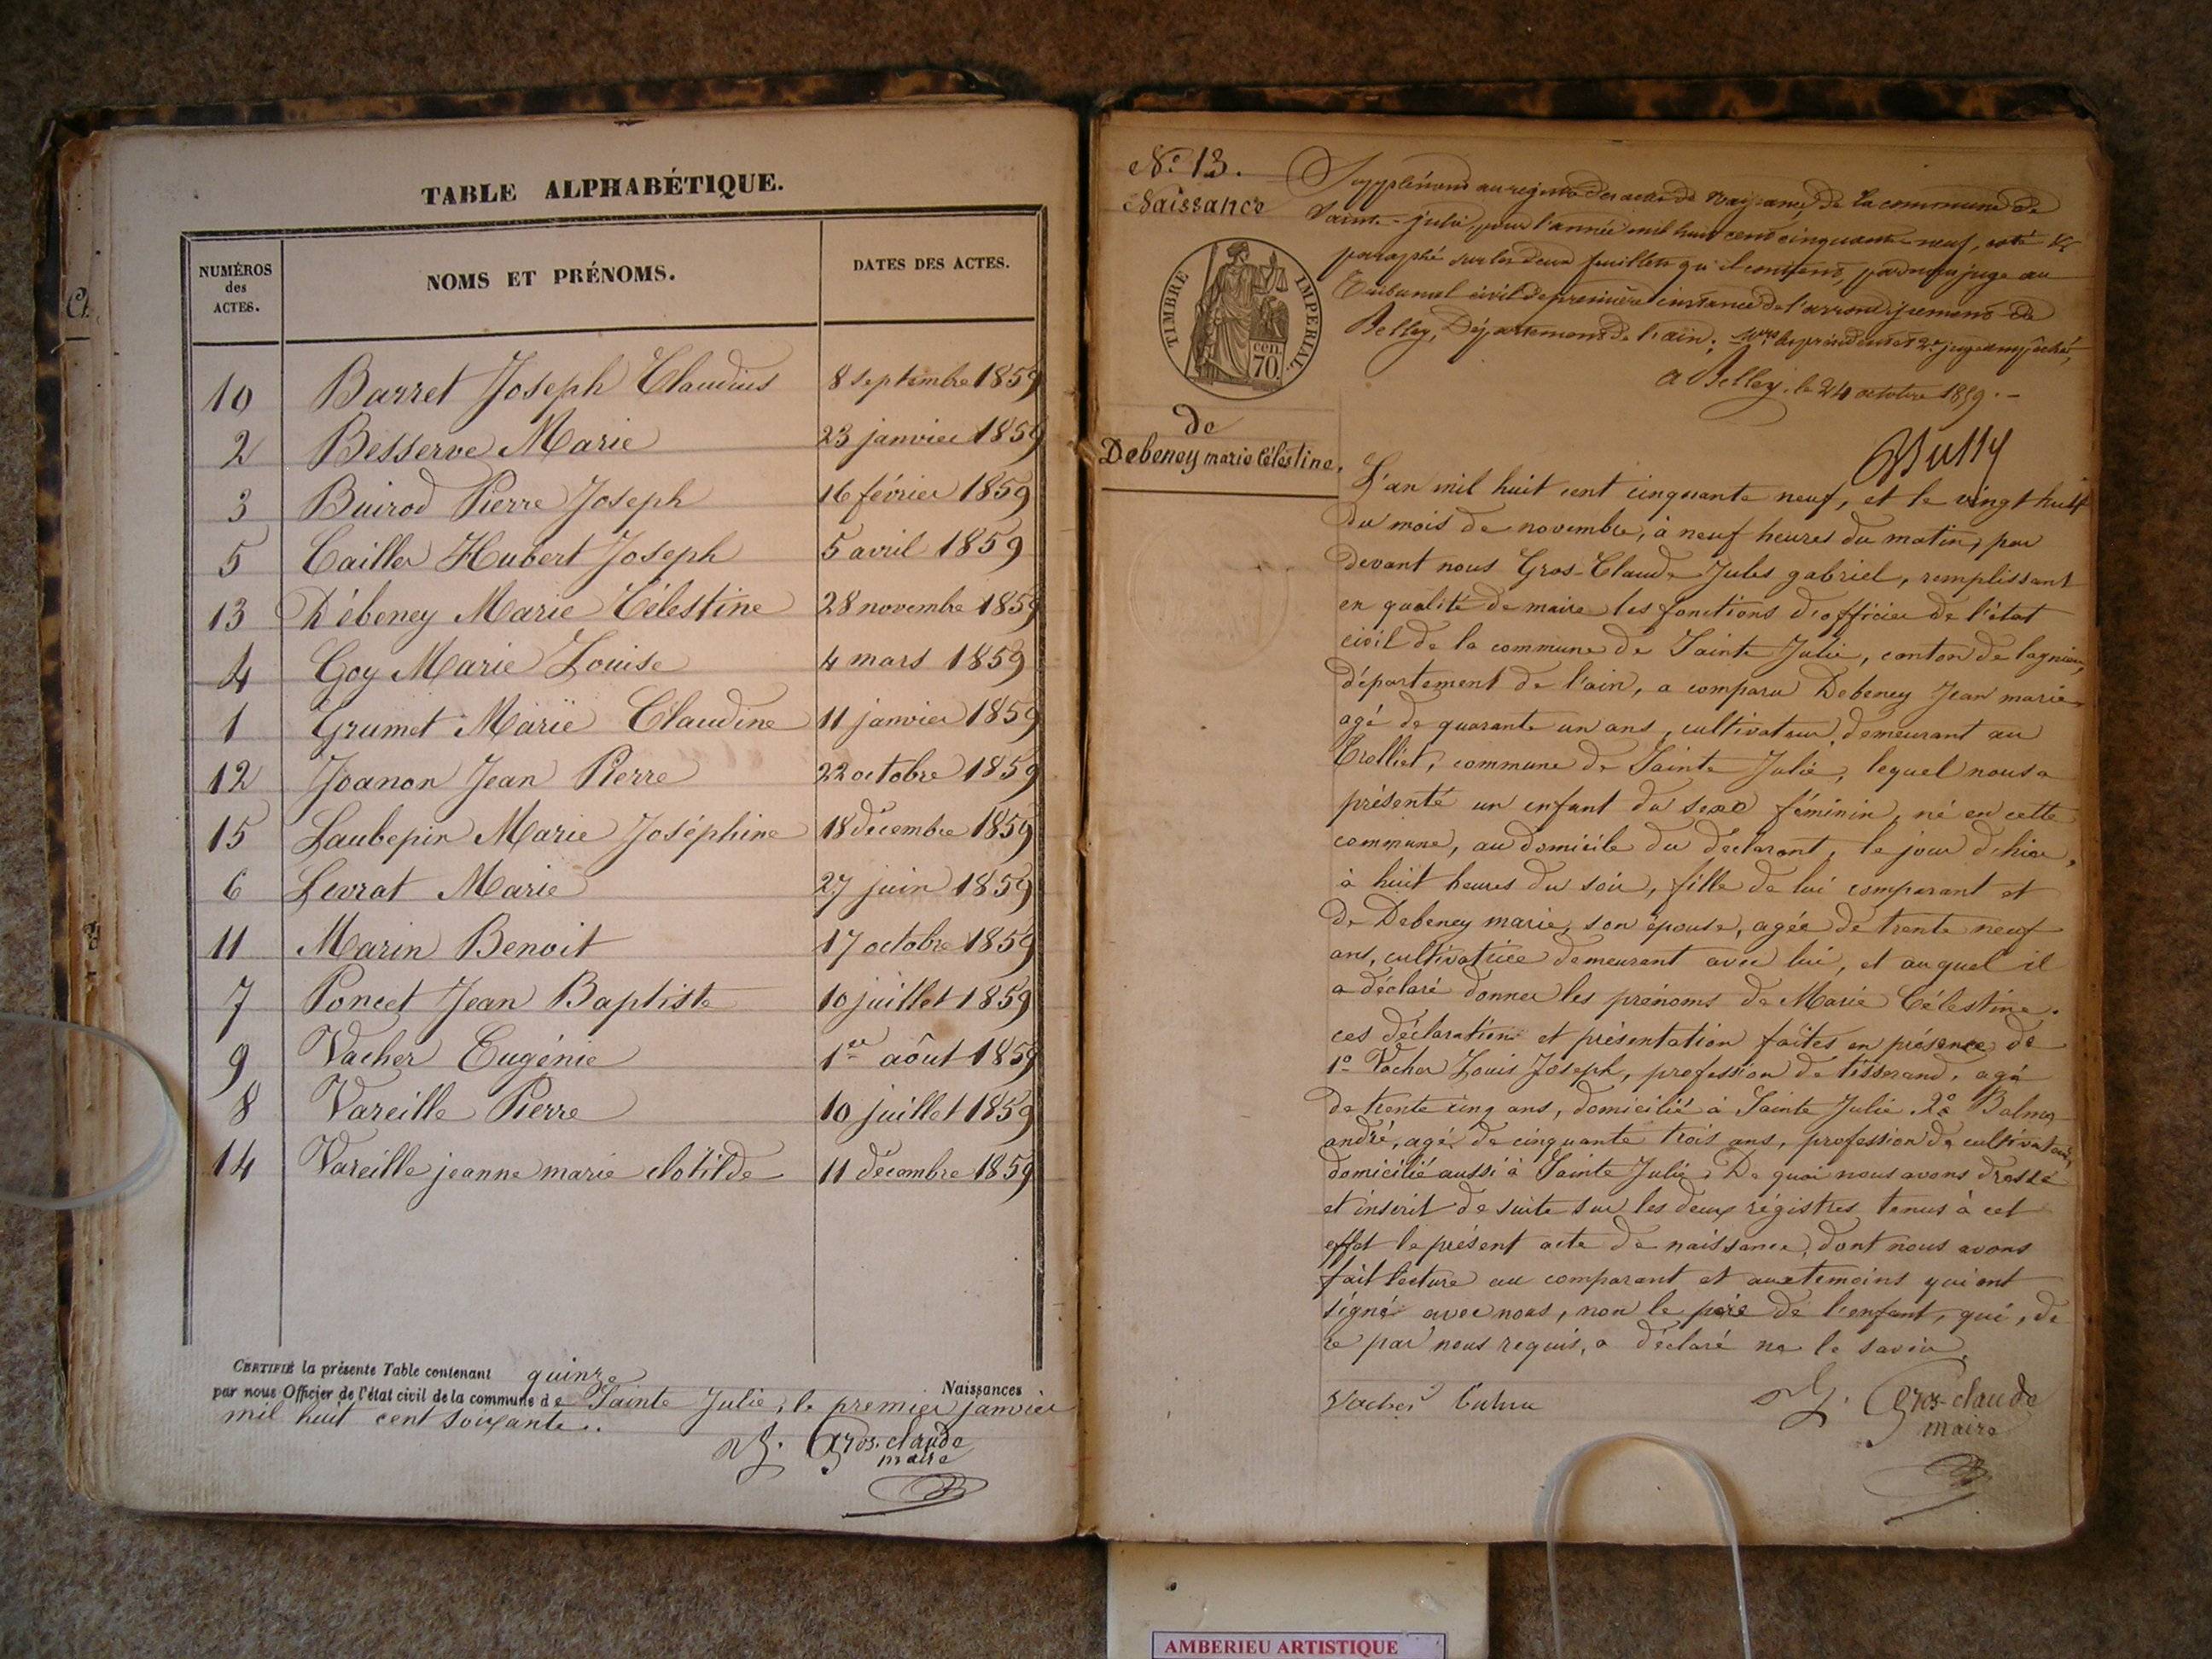 TABLE ALPHABÉTIQUE.
NUMÉROS des ACTES.
NOMS ET PRÉNOMS.
DATES DES ACTES.
10 Barret Joseph Claudius 8 septembre 1859
2 Besserve Marie 23 janvier 1859
3 Buirod Pierre Joseph 16 février 1859
5 Cailler Hubert Joseph 5 avril 1859
13 Débeney Marie Célestine 28 novembre 1859
4 Goy Marie Louise 4 mars 1859
1 Grumet Marie Claudine 11 janvier 1859
12 Joanon Jean Pierre 22 octobre 1859
15 Laubepin Marie Joséphine 18 décembre 1859
6 Levrat Marie 27 juin 1859
11 Marin Benoit 17 octobre 1859
7 Poncet Jean Baptiste 10 juillet 1859
9 Vacher Eugénie 1er août 1859
8 Vareille Pierre 10 juillet 1859
14 Vareille jeanne marie clotilde 11 décembre 1859
CERTIFIÉ la présente Table contenant quinze Naissances
par nous Officier de l'état civil de la commune de Sainte Julie, le premier janvier
mil huit cent soixante.
J. Gros-claude
maire
No 13.
Naissance
TIMBRE IMPÉRIAL.
cen.
70.
de
Debeney marie Célestine.
Supplément au registre des actes de naissance, de la commune de
Sainte-julie, pour l'année mil huit cent cinquante-neuf, coté &
paraphé sur les deux feuillets qu'il contient, par nous juge au
Tribunal civil de première instance de l'arrondissement de
Belley, Département de l'ain, le président et 2e juge empêchés,
a Belley, le 24 octobre 1859.
L'an mil huit cent cinquante neuf, et le vingt huit
du mois de novembre, à neuf heures du matin, par
devant nous Gros-Claude Jules gabriel, remplissant
en qualité de maire les fonctions d'officier de l'état
civil de la commune de Sainte Julie, canton de lagnieu,
département de l'ain, a comparu Debeney Jean marie
agé de quarante un ans, cultivateur, demeurant au
Trolliet, commune de Sainte Julie, lequel nous a
présenté un enfant du sexe féminin, né en cette
commune, au domicile du déclarant, le jour d'hier,
à huit heures du soir, fille de lui comparant et
de Debeney marie, son épouse, agée de trente neuf
ans, cultivatrice demeurant avec lui, et auquel il
a déclaré donner les prénoms de Marie Célestine.
ces déclaration et présentation faites en présence de
1o Vacher Louis Joseph, profession de tisserand, agé
de trente cinq ans, domicilié à Sainte Julie. 2o Balme
andré, agé de cinquante trois ans, profession de cultivateur,
domicilié aussi à Sainte Julie. De quoi nous avons dressé
et inscrit de suite sur les deux régistres tenus à cet
effet le présent acte de naissance, dont nous avons
fait lecture au comparant et aux temoins qui ont
signé avec nous, non le père de l'enfant, qui, de
ce par nous requis, a déclaré ne le savoir.
Vacher
J. Gros-claude
maire
AMBERIEU ARTISTIQUE